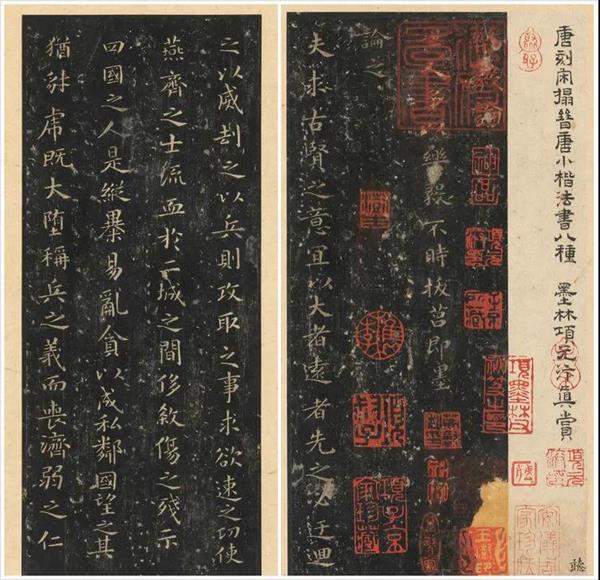 唐刻宋搨晉唐小楷法書八種 墨林項元汴真賞
樂毅論
人多以樂毅不時拔莒即墨
論之
夫求古賢之意宜以大者遠者先之必迂迴
之以威刦之以兵則攻取之事求欲速之功使
燕齊之士流血於二城之間侈敘傷之殘示
四國之人是縱暴易亂貪以成私鄰國望之其
猶豺虎既大墮稱兵之義而喪濟弱之仁
神品
項子京家珍藏